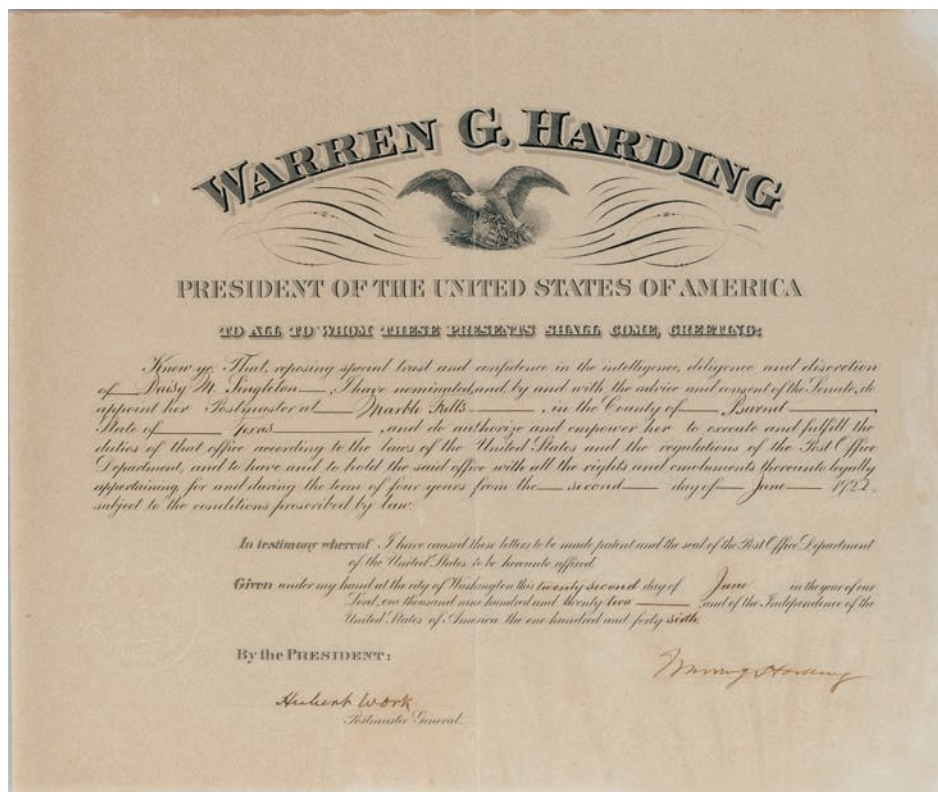 WARREN G. HARDING
PRESIDENT OF THE UNITED STATES OF AMERICA
TO ALL TO WHOM THESE PRESENTS SHALL COME, GREETING:
Know ye, That, reposing special trust and confidence in the intelligence, diligence and discretion
of Daisy M. Singleton, I have nominated, and, by and with the advice and consent of the Senate, do
appoint her Postmaster at Marble Falls, in the County of Burnet,
State of Texas, and do authorize and empower her to execute and fulfill the
duties of that office according to the laws of the United States and the regulations of the Post Office
Department, and to have and to hold the said office with all the rights and emoluments thereunto legally
appertaining, for and during the term of four years from the second day of June 1922,
subject to the conditions prescribed by law.
In testimony whereof I have caused these letters to be made patent and the seal of the Post Office Department
of the United States to be hereunto affixed.
Given under my hand at the city of Washington this twenty second day of June in the year of our
Lord one thousand nine hundred and twenty-two, and of the Independence of the
United States of America the one hundred and forty sixth.
By the PRESIDENT:
Warren G Harding
Hubert Work
Postmaster General.